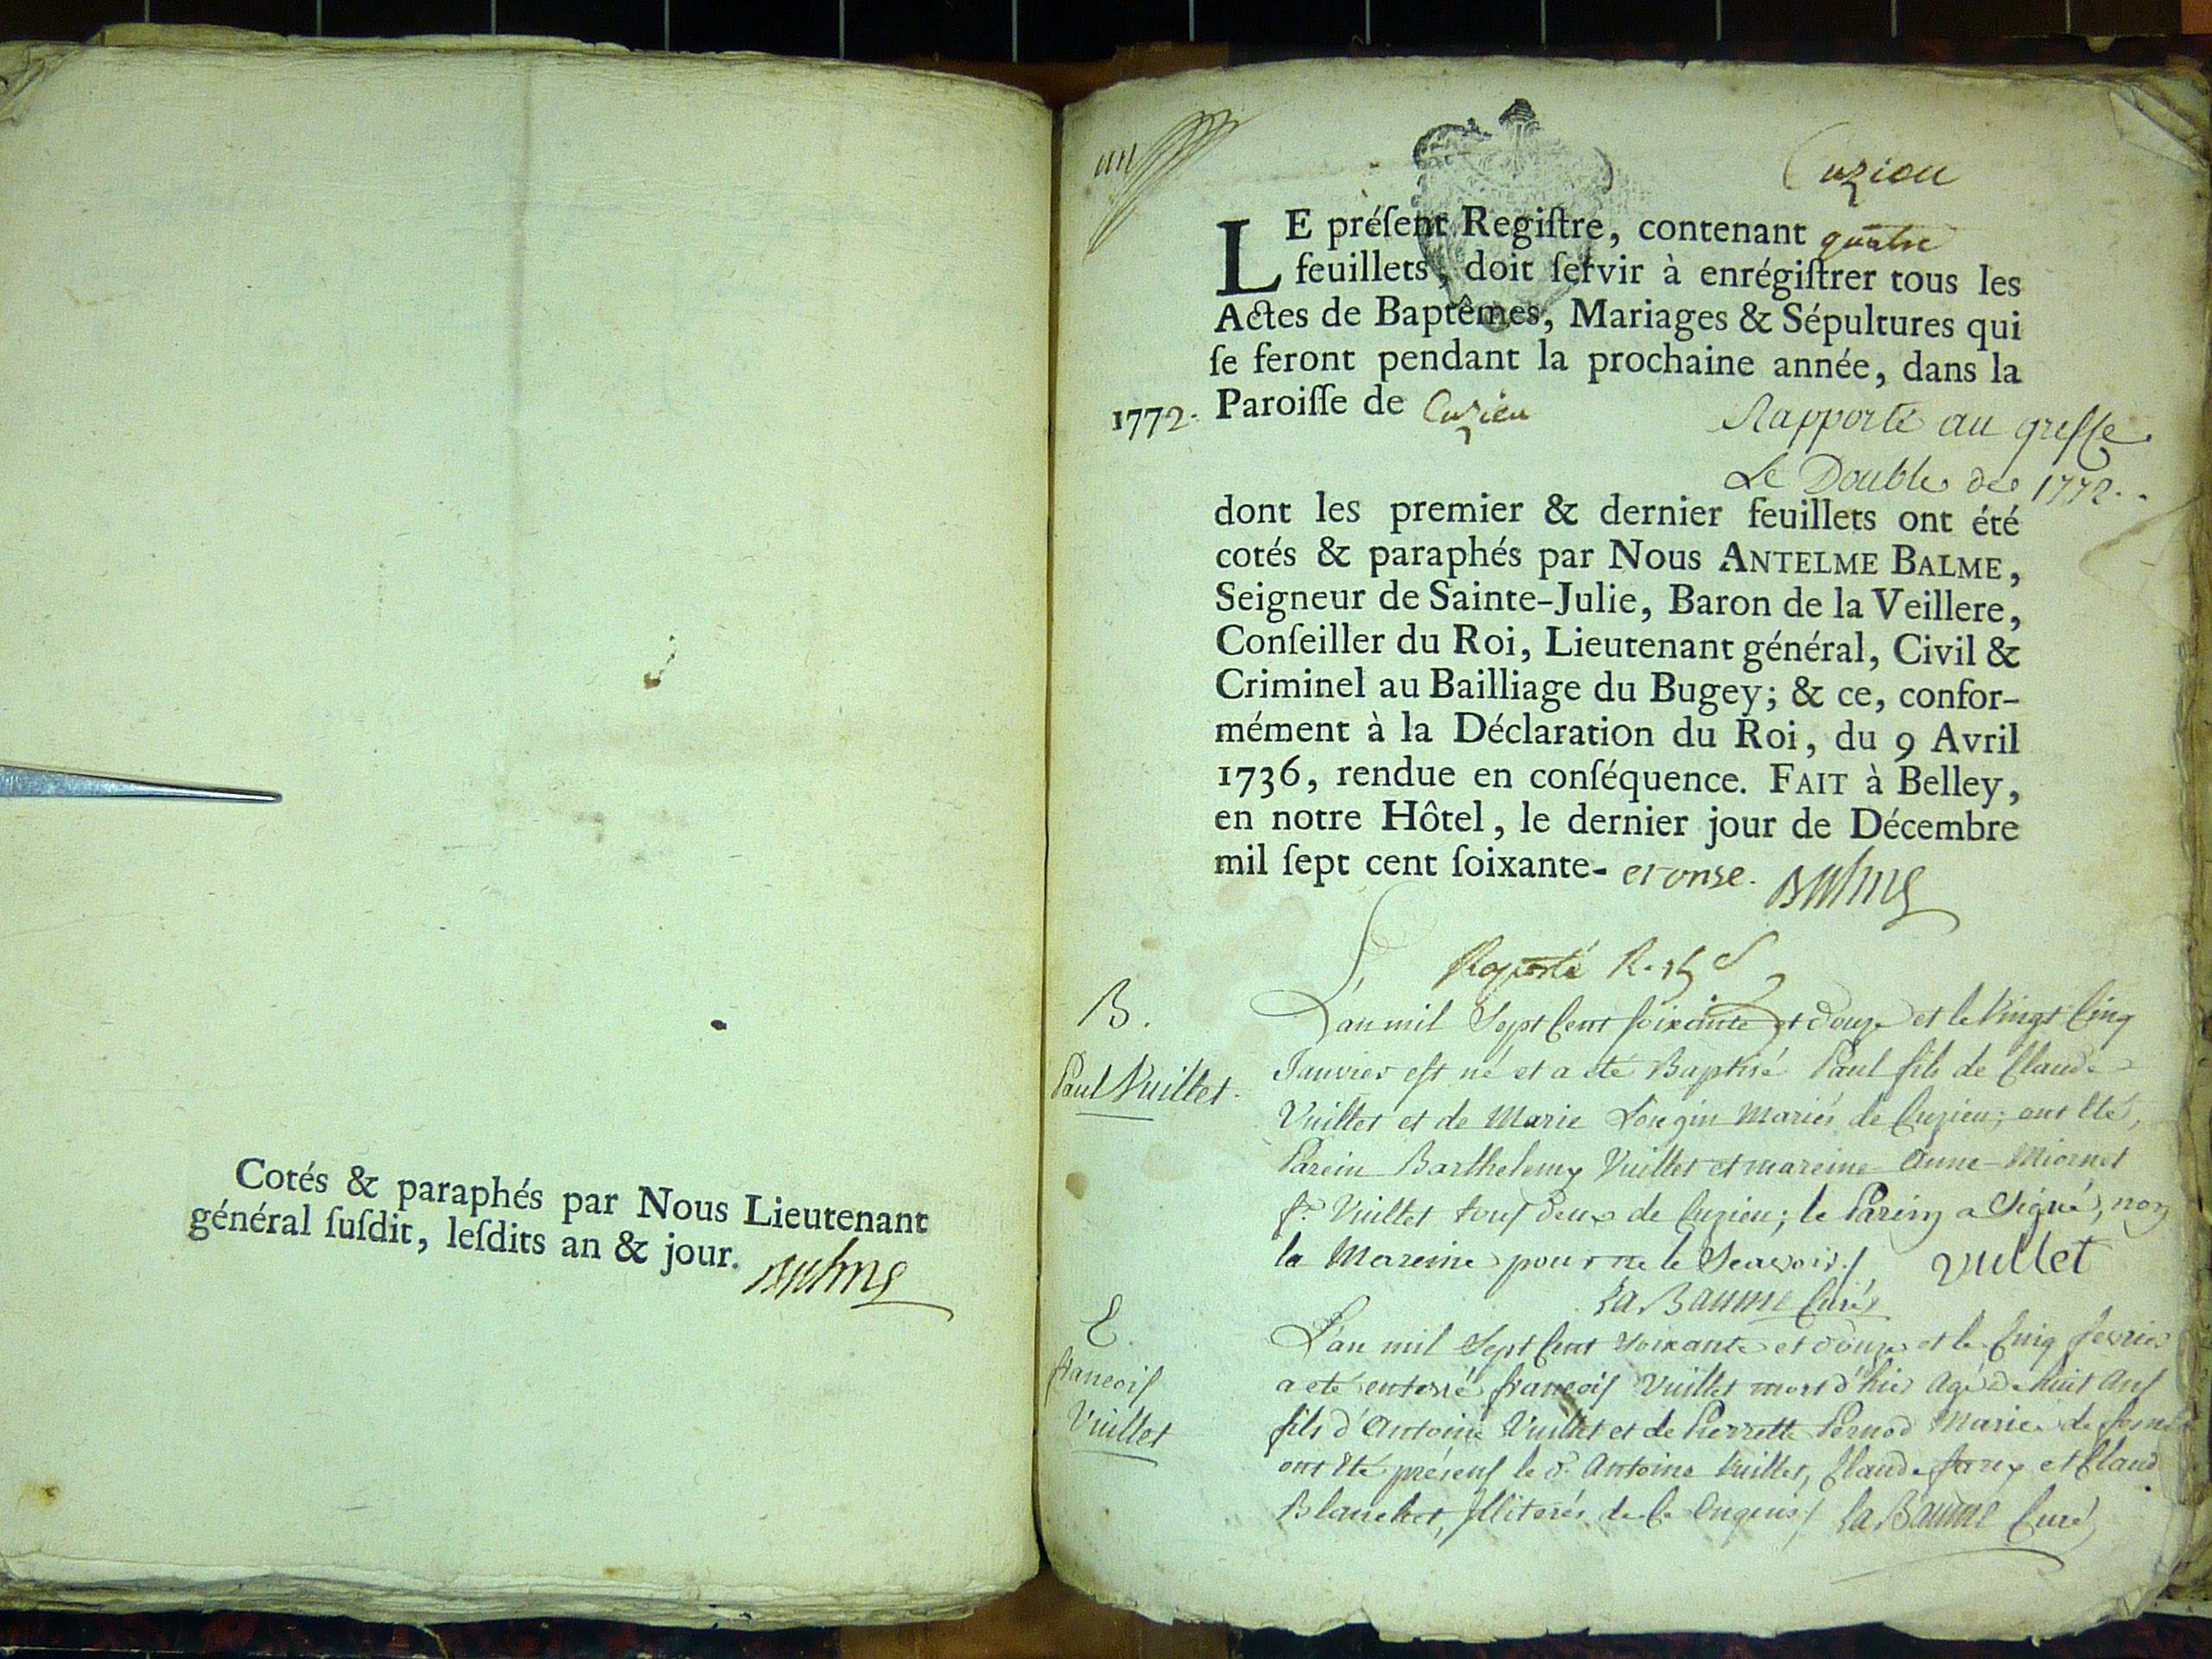 Cotés & paraphés par Nous Lieutenant
général ſuſdit, leſdits an & jour. Balme
Cuzieu
LE préſent Regiſtre, contenant quatre
feuillets, doit ſervir à enrégiſtrer tous les
Actes de Baptêmes, Mariages & Sépultures qui
ſe feront pendant la prochaine année, dans la
1772. Paroiſſe de Cuzieu
Rapporté au greffe
Le Double de 1772.
dont les premier & dernier feuillets ont été
cotés & paraphés par Nous ANTELME BALME,
Seigneur de Sainte-Julie, Baron de la Veillere,
Conſeiller du Roi, Lieutenant général, Civil &
Criminel au Bailliage du Bugey; & ce, confor-
mément à la Déclaration du Roi, du 9 Avril
1736, rendue en conſéquence. FAIT à Belley,
en notre Hôtel, le dernier jour de Décembre
mil ſept cent ſoixante- et onze. Balme
B.
Paul Vuillet.
L'an mil Sept Cent soixante et douze et le Vingt Cinq
Janvier est né et a été Baptisé Paul fils de Claude
Vuillet et de Marie Longin Mariés de Cuzieu; ont été,
Parein Barthelemy Vuillet et mareine Anne Miornet
fe. Vuillet tous deux de Cuzieu; le Parein a Signé, non
la Mareine pour ne le Scavoir./ vullet
La Baume Curé
E.
francois
Vuillet
L'an mil Sept Cent soixante et douze et le Cinq fevrier
a eté enterré francois Vuillet mort d'hier agé de huit ans
fils d'Antoine Vuillet et de Pierrette Pernod Mariés de
ont été présens le d. Antoine Vuillet, Claude et Claud
Blanchet, Illiterés de Cuzieu/ La Baume Curé